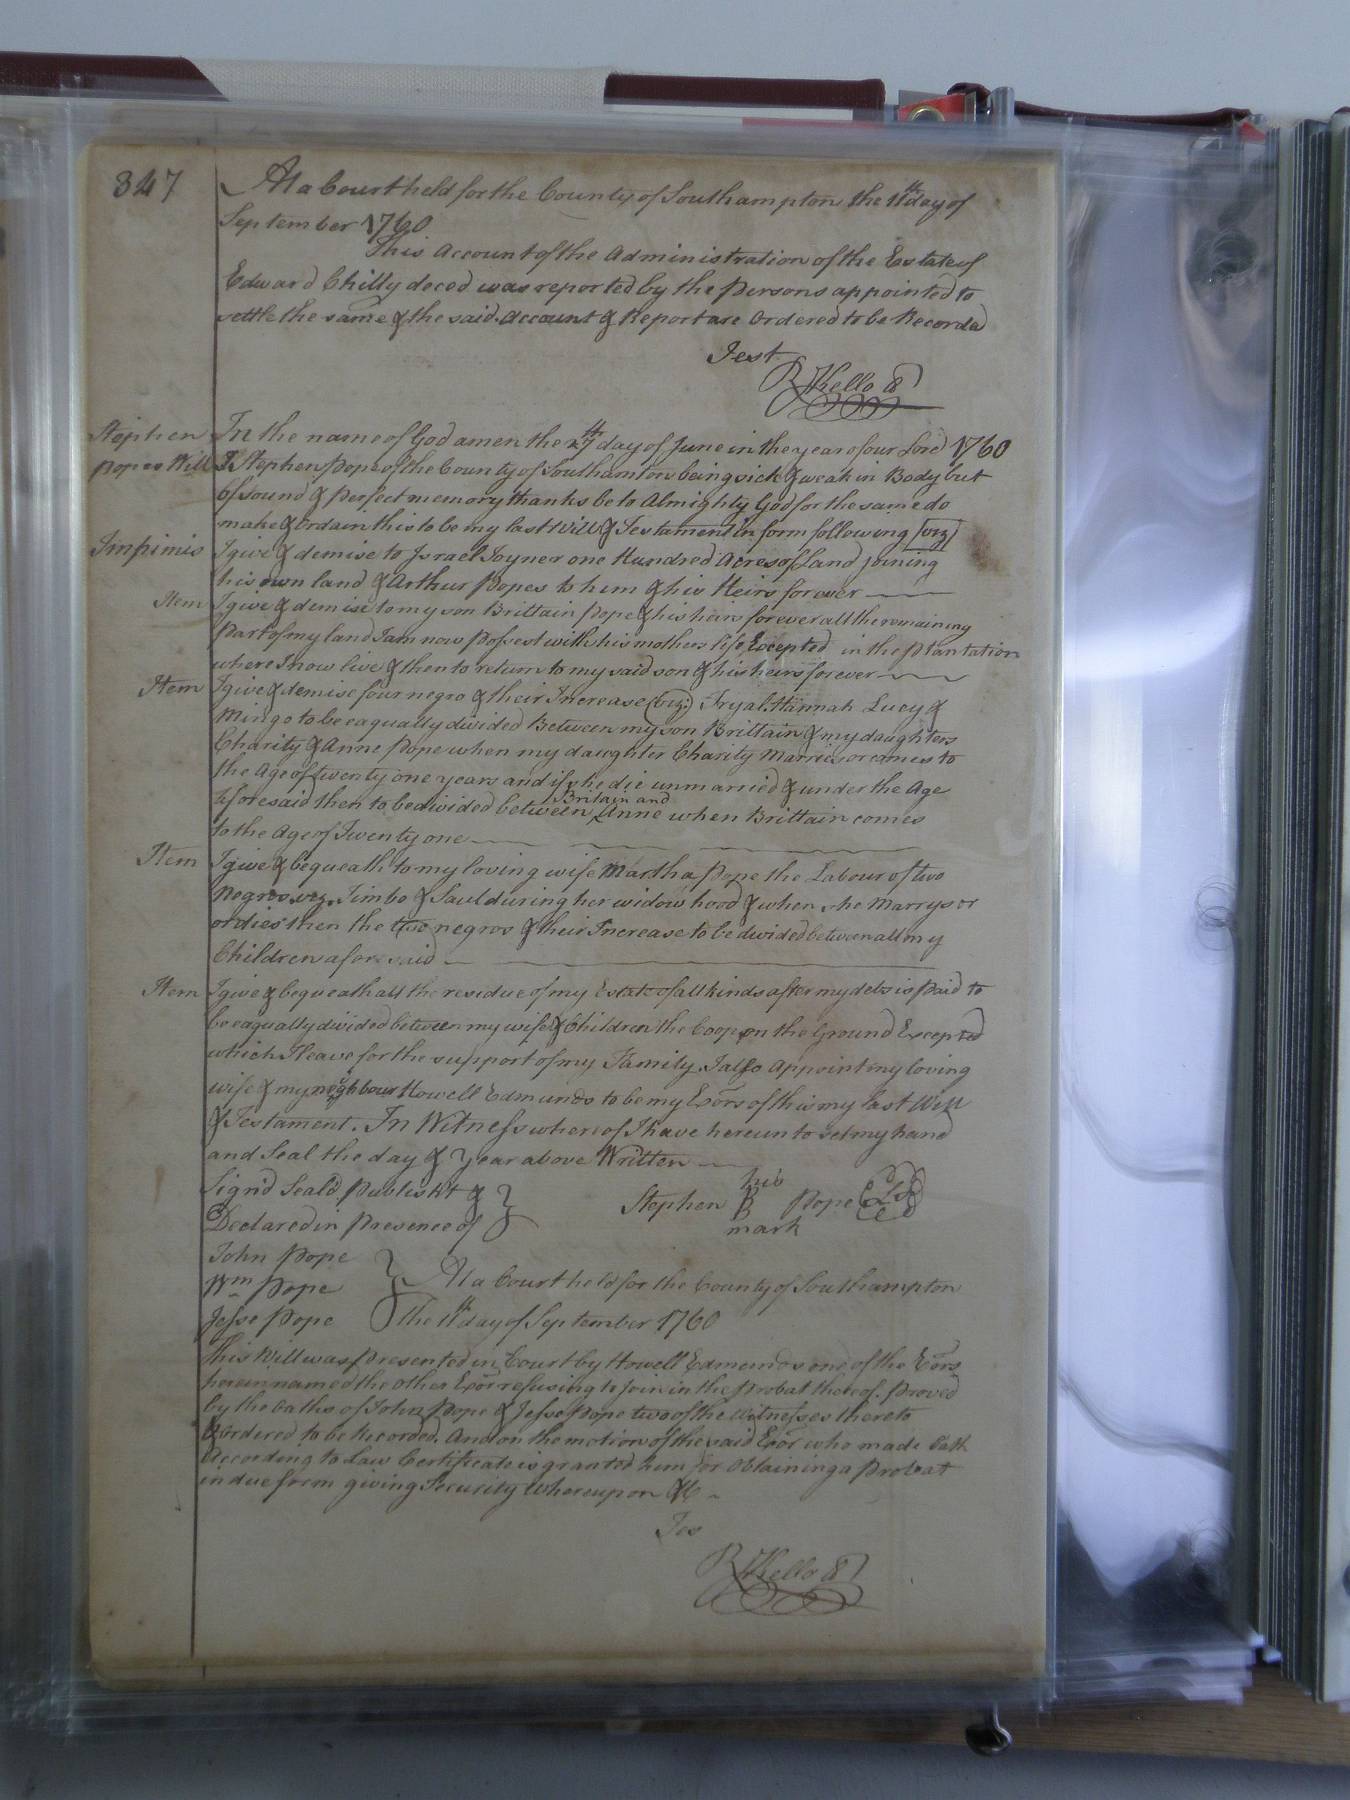 347
At a Court held for the County of Southampton the 11th day of
September 1760
This Account of the Administration of the Estate of
Edward Chitty deced was reported by the persons appointed to
settle the same & the said Account & Report are Ordered to be Recorded
Test
R Kello Cl
Stephen
popes Will
In the name of God amen the 27th day of June in the year of our Lord 1760
I Stephen pope of the County of Southamton being sick & weak in Body but
Of sound & perfect memory thanks be to Almighty God for the same do
make & Ordain this to be my last Will & Testament in form following (viz)
Impimis I give & demise to Israel Joyner one Hundred Acres of Land joining
his own land & Arthur Popes to him & his Heirs forever
Item I give & demise to my son Brittain pope & his heirs forever all the remaining
part of my land I am now possest with his mothers life Excepted in the plantation
where I now live & then to return to my said son & his heirs forever
Item I give & demise four negro & their Increase (viz) Tryal Hannah Lucy &
Mingo to be eaqually divided Between my son Brittain & my daughters
Charity & Anne Pope when my daughter Charity Marries or comes to
the Age of twenty one years and if she die unmarried & under the Age
Britain and
aforesaid then to be divided between Anne when Brittain comes
to the Age of Twenty one
Item I give & bequeath to my loving wife Martha Pope the Labour of two
Negros viz. Jimbo & Saul during her widow hood & when she Marrys or
or dies then the two negros & their Increase to be divided between all my
Children aforesaid
Item I give & bequeath all the residue of my Estate of all kinds after my debs is paid to
be eaqually divided between my wife & Children the Coop on the Ground Excepted
which I leave for the support of my Family. I also Appoint my loving
wife & my neighbour Howell Edmunds to be my Exors of this my last Will
& Testament. In Witness whereof I have hereun to set my hand
and Seal the day & year above Written
Sign'd Seal'd publisht &
Declared in presence of
his
Stephen P Pope LS
mark
John Pope
Wm Pope
Jesse Pope
At a Court held for the County of Southampton
the 11th day of September 1760
This Will was presented in Court by Howell Edmunds one of the Exors
herein named the other Exor refusing to join in the probat thereof. proved
by the Oaths of John Pope & Jesse Pope two of the Witnesses thereto
& Ordered to be Recorded. And on the motion of the said Exor who made Oath
According to Law Certificate is granted him for Obtaining a Probat
in due form giving Security Whereupon &C
Tes
R Kello Cl